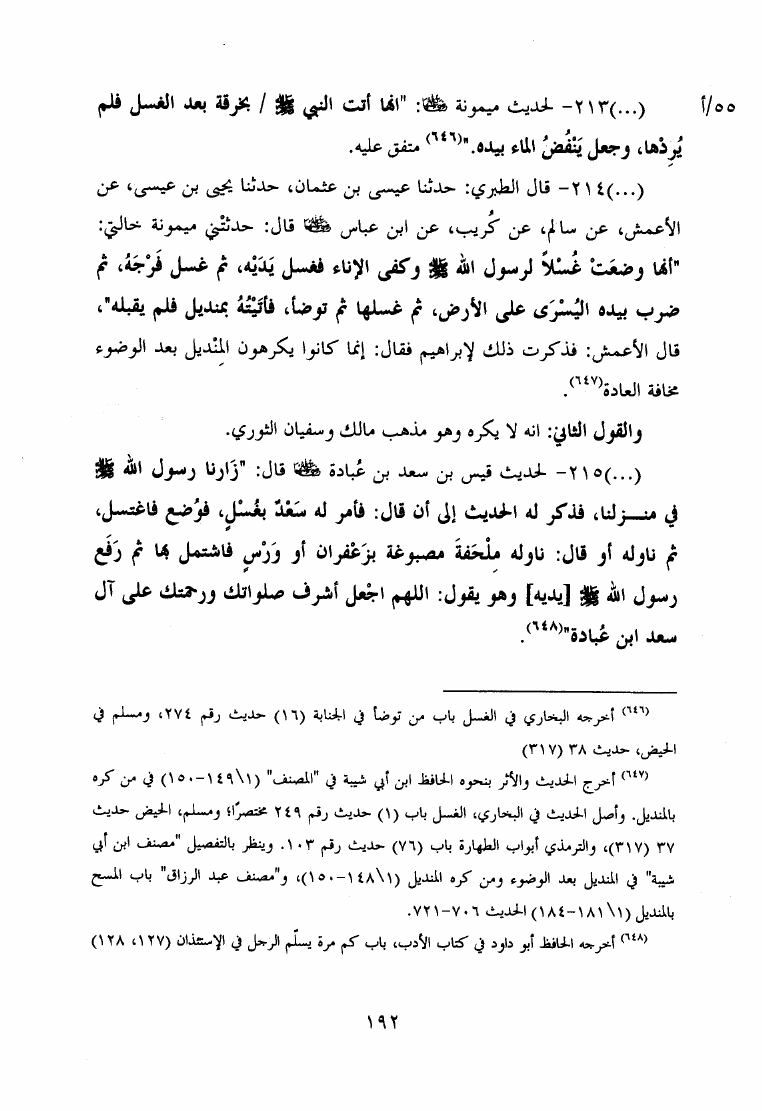 ٥٥/أ (...)٢١٣- لحديث ميمونة ﵂: "انها أتت النبي ﷺ / بخرقة بعد الغسل فلم
يُرِدْها، وجعل يَنْفُضُ الماء بيده."(٦٤٦) متفق عليه.
(...)٢١٤- قال الطبري: حدثنا عيسى بن عثمان، حدثنا يحيى بن عيسى، عن
الأعمش، عن سالم، عن كُريب، عن ابن عباس ﵁ قال: حدثتْني ميمونة خالتي:
"أنها وضعَتْ غُسْلاً لرسول الله ﷺ وكفى الإناء فغسل يَدَيْه، ثم غسل فَرْجَهُ، ثم
ضرب بيده اليُسْرَى على الأرض، ثم غسلها ثم توضأ، فأتَيْتُهُ بمنديل فلم يقبله"،
قال الأعمش: فذكرت ذلك لإبراهيم فقال: إنما كانوا يكرهون المِنْديل بعد الوضوء
مخافة العادة(٦٤٧).
والقول الثاني: انه لا يكره وهو مذهب مالك وسفيان الثوري.
(...)٢١٥- لحديث قيس بن سعد بن عُبادة ﵁ قال: "زَارنا رسول الله ﷺ
في منـــزلنا، فذكر له الحديث إلى أن قال: فأمر له سَعْدٌ بغُسْلٍ، فوُضع فاغتسل،
ثم ناوله أو قال: ناوله مِلْحَفةَ مصبوغة بزَعْفران أو وَرْسٍ فاشتمل بها ثم رَفَع
رسول الله ﷺ [يديه] وهو يقول: اللهم اجْعل أشرف صلواتك ورحمتك على آل
سعد ابن عُبادة"(٦٤٨).
(٦٤٦) أخرجه البخاري في الغسل باب من توضأ في الجنابة (١٦) حديث رقم ٢٧٤، ومسلم في
الحيض، حديث ٣٨ (٣١٧)
(٦٤٧) أخرج الحديث والأثر بنحوه الحافظ ابن أبي شيبة في "المصنف" (١\١٤٩-١٥٠) في من كره
بالمنديل. وأصل الحديث في البخاري، الغسل باب (١) حديث رقم ٢٤٩ مختصرًا؛ ومسلم، الحيض حديث
٣٧ (٣١٧)، والترمذي أبواب الطهارة باب (٧٦) حديث رقم ١٠٣. وينظر بالتفصيل "مصنف ابن أبي
شيبة" في المنديل بعد الوضوء ومن كره المنديل (١\١٤٨-١٥٠)، و"مصنف عبد الرزاق" باب المسح
بالمنديل (١\١٨١-١٨٤) الحديث ٧٠٦-٧٢١.
(٦٤٨) أخرجه الحافظ أبو داود في كتاب الأدب، باب كم مرة يسلّم الرجل في الإستئذان (١٢٧، ١٢٨)
١٩٢